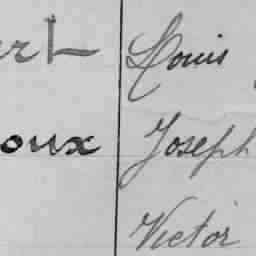 Louis
oux Joseph
Victor